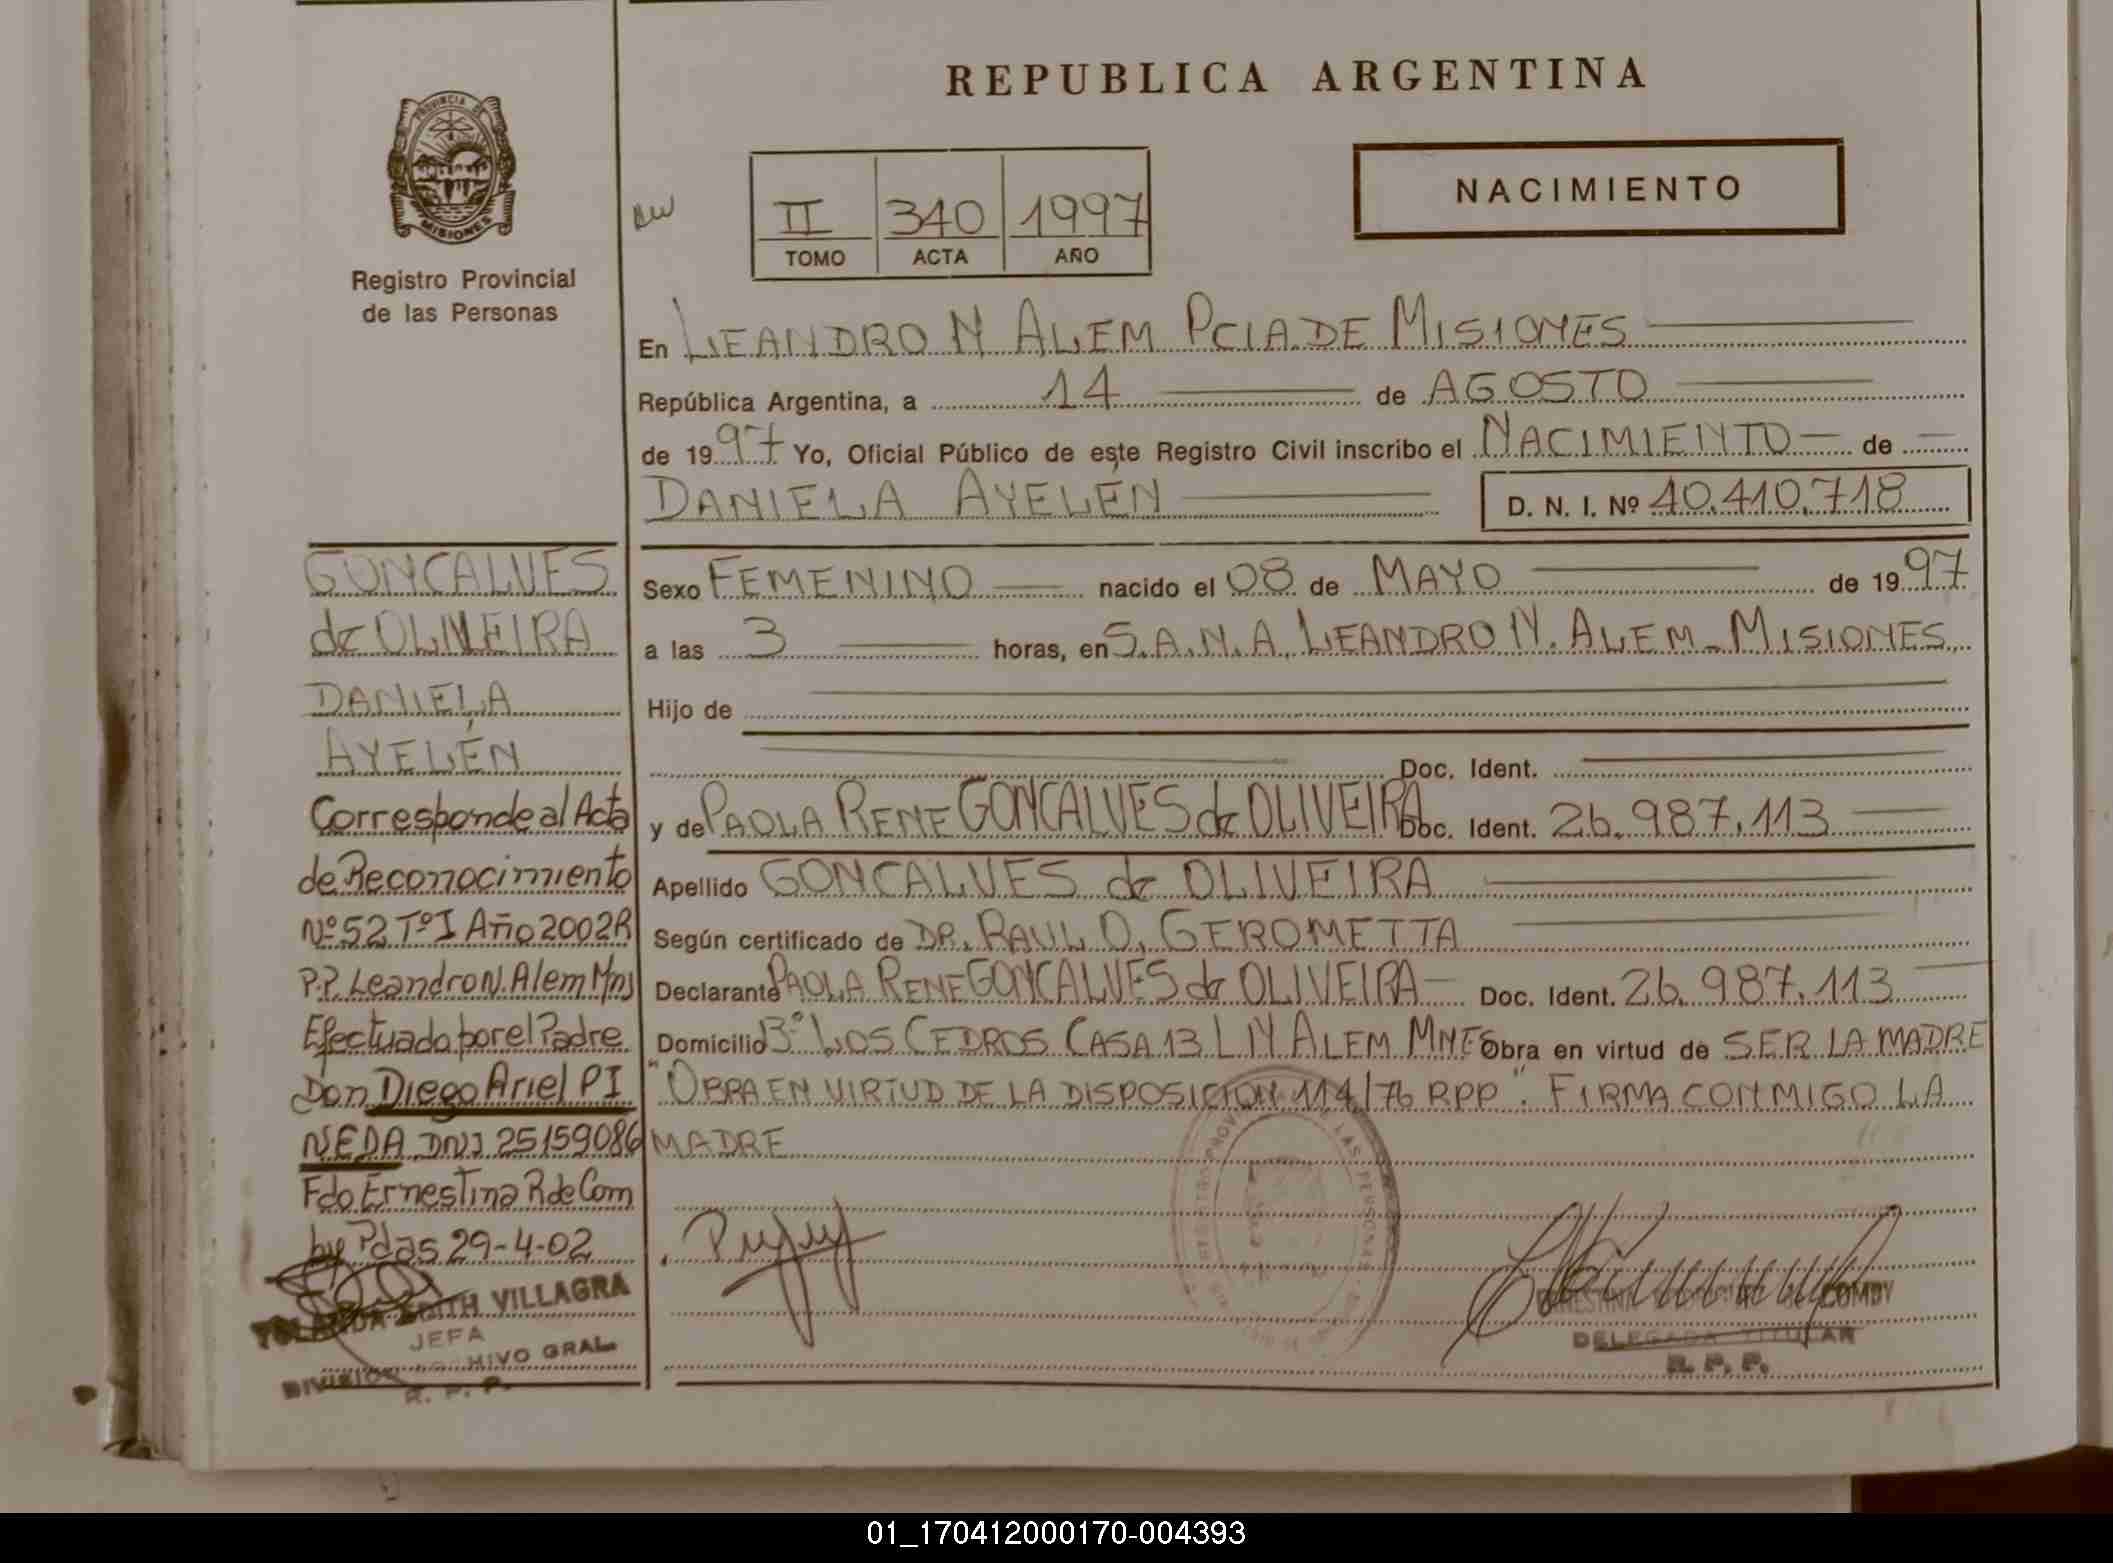 REPUBLICA ARGENTINA
PROVINCIA DE
MISIONES
Registro Provincial
de las Personas
II 340 1997
TOMO ACTA AÑO
NACIMIENTO
En LEANDRO N ALEM PCIA DE MISIONES
República Argentina, a 14 de AGOSTO
de 1997 Yo, Oficial Público de este Registro Civil inscribo el NACIMIENTO de
DANIELA AYELÉN D. N. I. Nº 40.410.718
Sexo FEMENINO nacido el 08 de MAYO de 1997
a las 3 horas, en S.A.N.A. LEANDRO N. ALEM - MISIONES
Hijo de
Doc. Ident.
y de PAOLA RENE GONCALVES de OLIVEIRA Doc. Ident. 26.987.113
Apellido GONCALVES de OLIVEIRA
Según certificado de DR. RAUL O. GEROMETTA
Declarante PAOLA RENE GONCALVES de OLIVEIRA Doc. Ident. 26.987.113
Domicilio Bº LOS CEDROS CASA 13 L N ALEM MNES Obra en virtud de SER LA MADRE
"OBRA EN VIRTUD DE LA DISPOSICION 114/76 RPP". FIRMA CONMIGO LA
MADRE
GONCALVES
de OLIVEIRA
DANIELA
AYELÉN
Corresponde al Acta
de Reconocimiento
Nº 52 Tº I Año 2002 R
P.P. Leandro N. Alem Mns
Efectuado por el Padre
Don Diego Ariel PI
NEDA DNI 25159086
Fdo Ernestina R de Com
by Pdas 29-4-02
YOLANDA EDITH VILLAGRA
JEFA
DIVISION ARCHIVO GRAL.
R. P. P.
LAS PERSONAS
ERNESTINA DE COMBY
DELEGADA TITULAR
R. P. P.
01_170412000170-004393